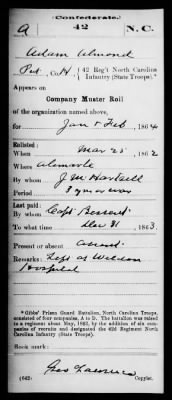 (Confederate.)
A 42 N.C.
Adam Almond
Pvt, Co. H, 42 Reg't North Carolina
Infantry (State Troops).*
Appears on
Company Muster Roll
of the organization named above,
for Jan & Feb, 1864
Enlisted:
When Mar 25, 1862
Where Albemarle
By whom J M Hartsell
Period 3 yrs or war
Last paid:
By whom Capt
To what time Dec 31, 1863
Present or absent Absent
Remarks: Left at Weldon
Hospital
*Gibbs' Prison Guard Battalion, North Carolina Troops,
consisted of four companies, A to D. The battalion was raised
to a regiment about May, 1862, by the addition of six com-
panies of recruits and designated the 42d Regiment North
Carolina Infantry (State Troops).
Book mark:
(642) Geo Lawrence
Copyist.